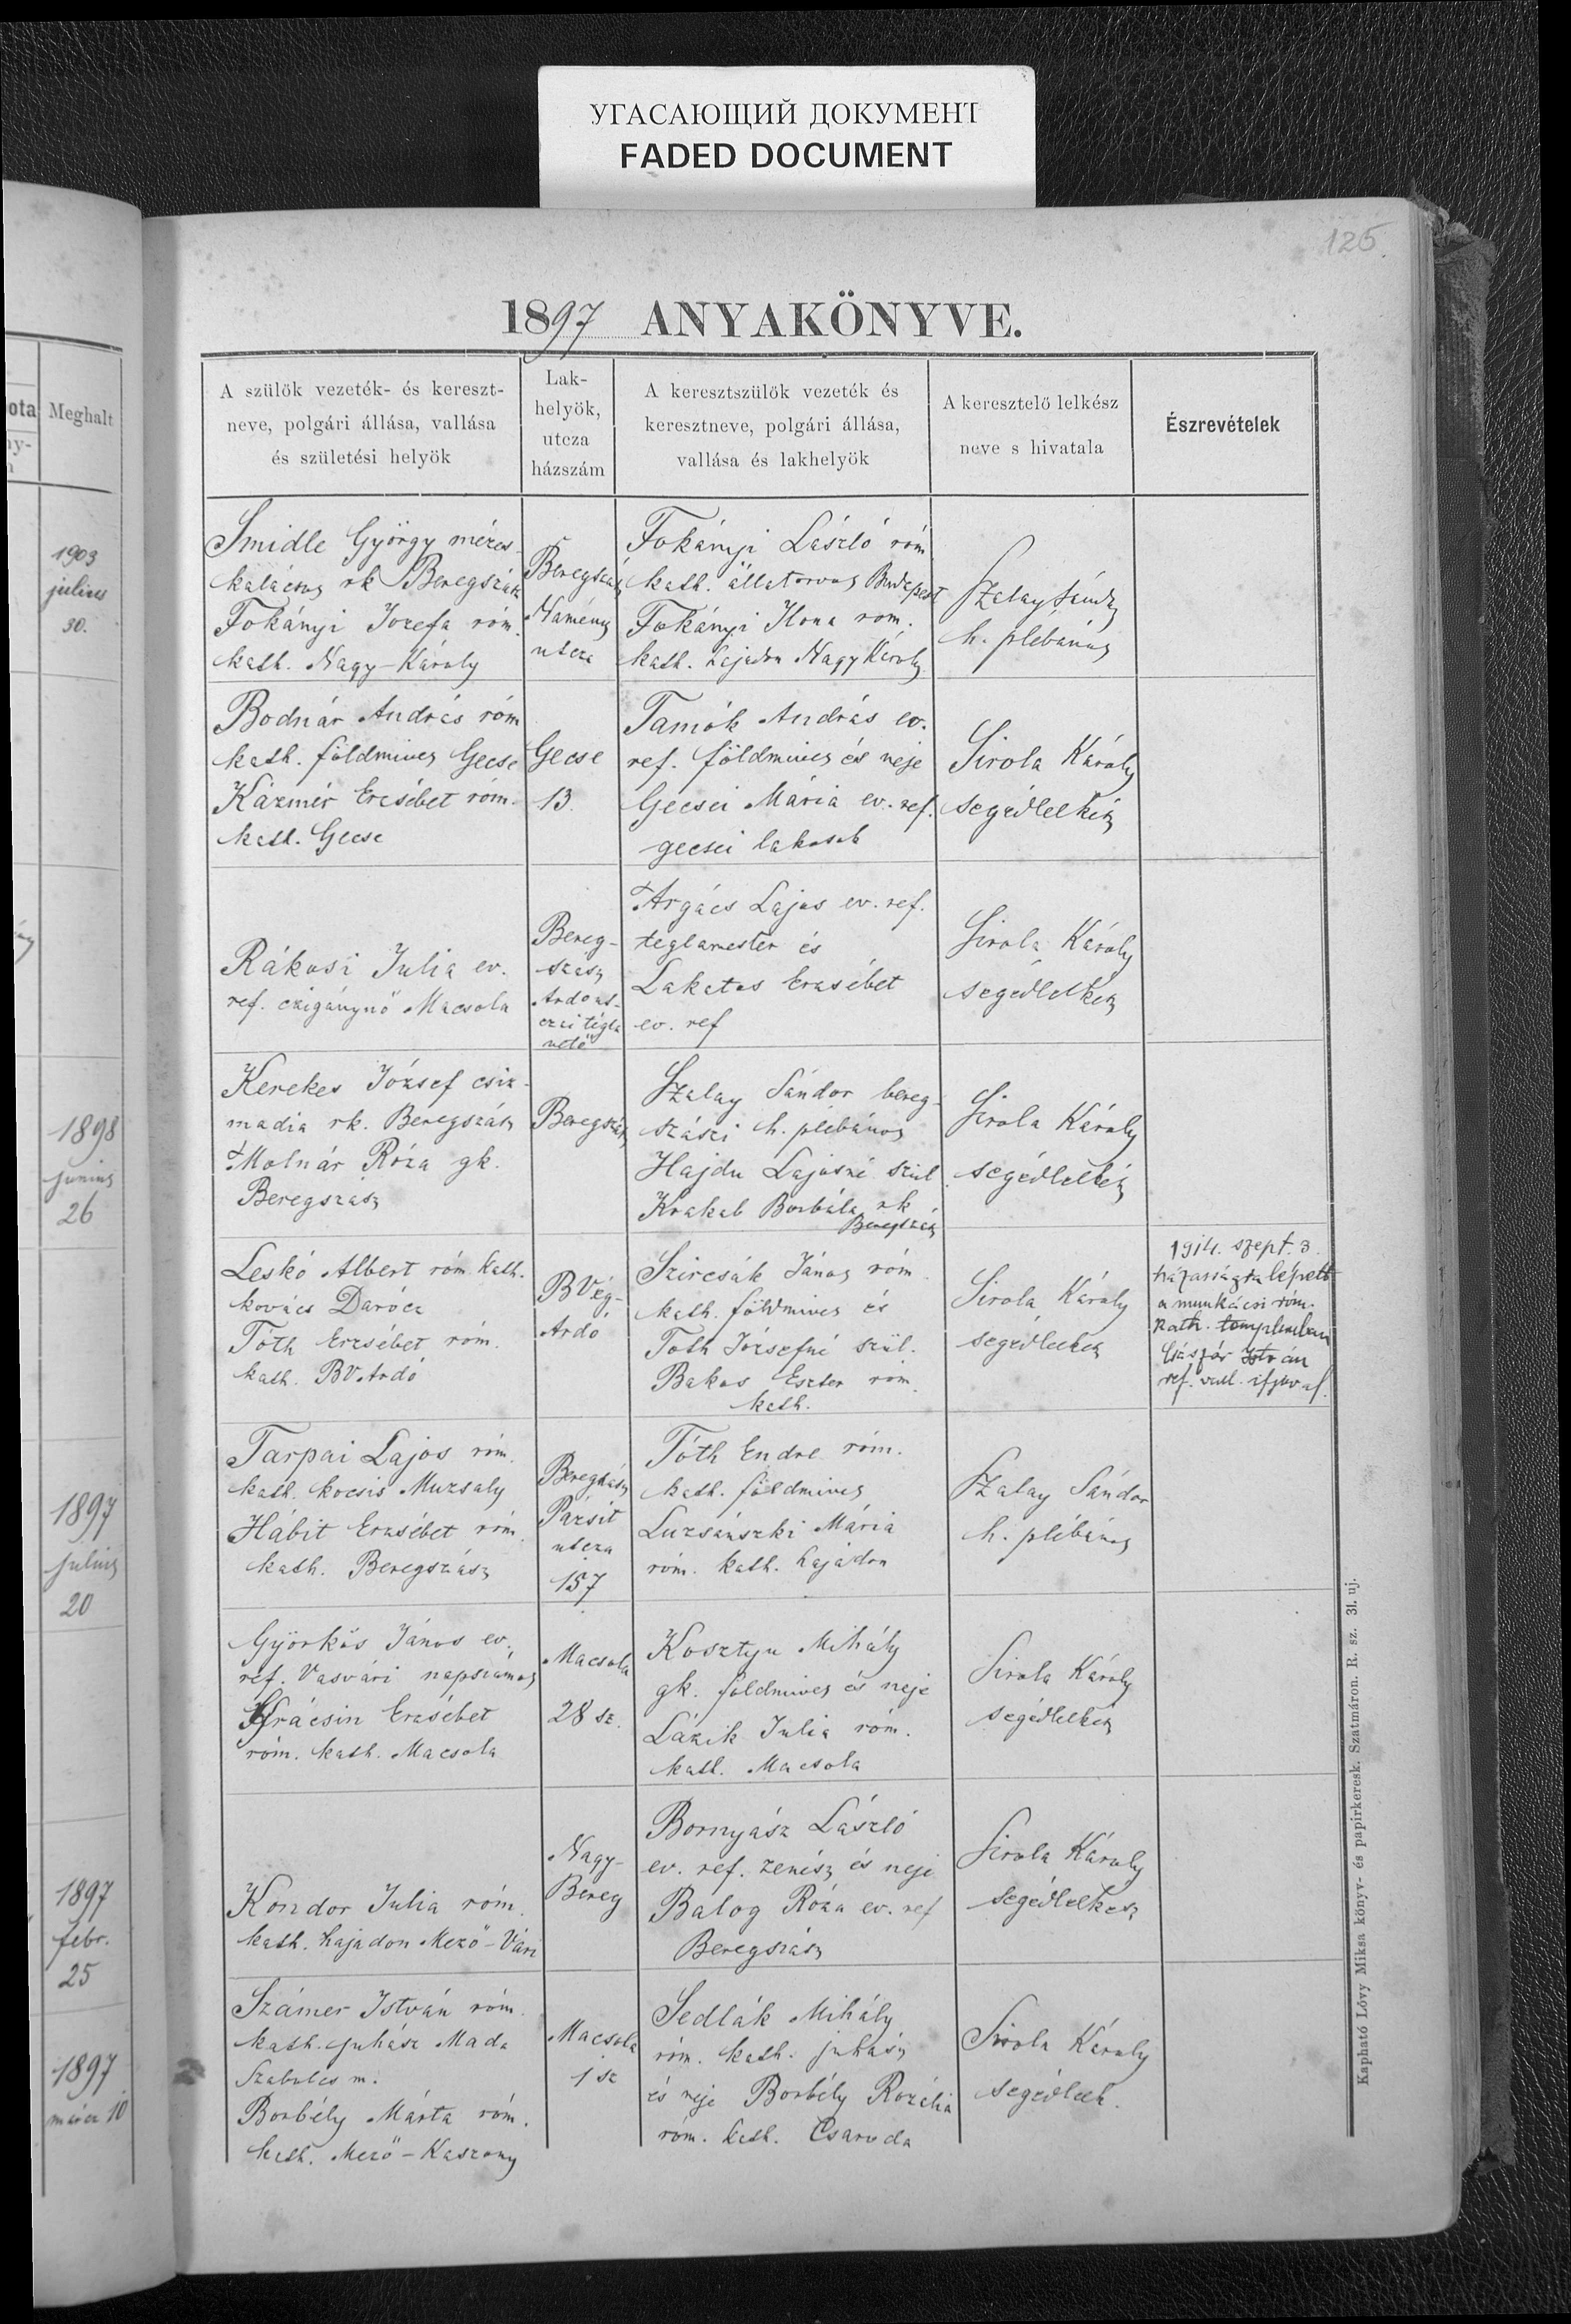 УГАСАЮЩИЙ ДОКУМЕНТ
FADED DOCUMENT
125
1897 ANYAKÖNYVE.
ota
Meghalt
A szülök vezeték- és kereszt-
neve, polgári állása, vallása
és születési helyök
Lak-
helyök,
utcza
házszám
A keresztszülök vezeték és
keresztneve, polgári állása,
vallása és lakhelyök
A keresztelö lelkész
neve s hivatala
Észrevételek
1903
julius
30.
Smidle György mézes-
kalácsos rk Beregszász
Fokányi Jozefa róm.
kath. Nagy-Károly
Beregszász
Namény
utcza
Fokányi László róm
kath. állatorvos Budapest
Fokányi Ilona rom.
kath. hajadon Nagy Károly
Szalay Sándor
h. plébános
Bodnár András róm
kath. földmives Gecse
Kázmér Erzsébet róm.
kath. Gecse
Gecse
13.
Tamók András ev.
ref. földmives és neje
Gecsei Mária ev. ref.
gecsei lakosok
Sirola Károly
segédlelkész
Rákosi Julia ev.
ref. czigánynö Macsola
Bereg-
szász
Argács Lajos ev. ref.
teglamester és
Lakatos Erzsébet
ev. ref
Sirola Károly
segédlelkész
1898
junius
26
Kerekes József csiz-
madia rk. Beregszász
Molnár Róza gk.
Beregszász
Beregszász
Szalay Sándor bereg-
szászi h. plébános
Hajdu Lajosné szül.
Krakab Borbála rk
Beregszász
Sirola Károly
segédlelkész
Leskó Albert róm kath.
kovács Darócz
Tóth Erzsébet róm.
kath. BV.Ardó
BVég-
Ardó
Szircsák János róm
kath. földmives és
Toth Józsefné szül.
Bakos Eszter róm.
kath.
Sirola Károly
segédlelkész
1914. szept. 3.
házasságra lépett
a munkácsi róm.
kath. templomban
Császár István
ref. vall.
1897
julius
20
Tarpai Lajos róm.
kath. kocsis Muzsaly
Hábit Erzsébet róm.
kath. Beregszász
Beregszász
Pázsit
utcza
157
Tóth Endre róm.
kath. földmives
Luzsánszki Mária
róm. kath. hajadon
Szalay Sándor
h. plébános
Györkös János ev.
ref. Vasvári napszámos
Erzsébet
róm. kath. Macsola
Macsola
28 sz.
Kosztyu Mihály
gk. földmives és neje
Lázik Julia róm.
kath. Macsola
Sirola Károly
segédlelkész
1897
febr.
25
Kondor Julia róm.
kath. hajadon Mezö-Vári
Nagy-
Bereg
Bornyász László
ev. ref. zenész és neje
Balog Róza ev. ref
Beregszász
Sirola Károly
segédlelkész
1897
márcz 10
Számer István róm.
kath. juhász Mada
Szabolcs m.
Borbély Márta róm.
kath. Mezö-Kaszony
Macsola
1 sz
Sedlák Mihály
róm. kath. juhász
és neje Borbély Rozália
róm. kath. Csaroda
Sirola Károly
segédlelk.
Kapható Lövy Miksa könyv- és papirkeresk. Szatmáron. R. sz. 31. uj.